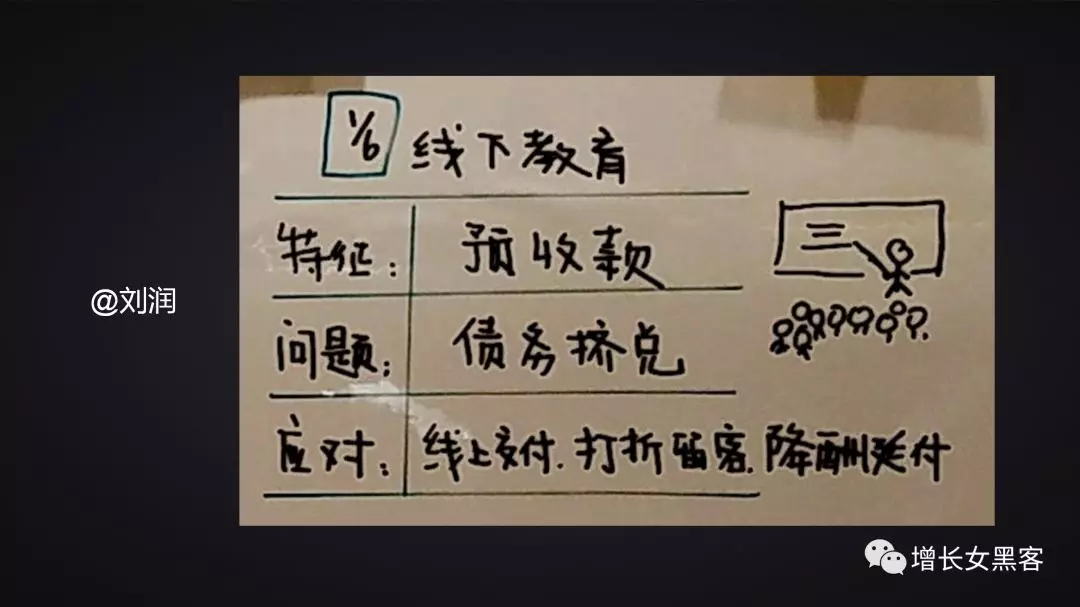 1/6 线下教育
特征: 预收款
@刘润
问题: 债务挤兑
应对: 线上交付.打折留客.降酬延付
增长女黑客